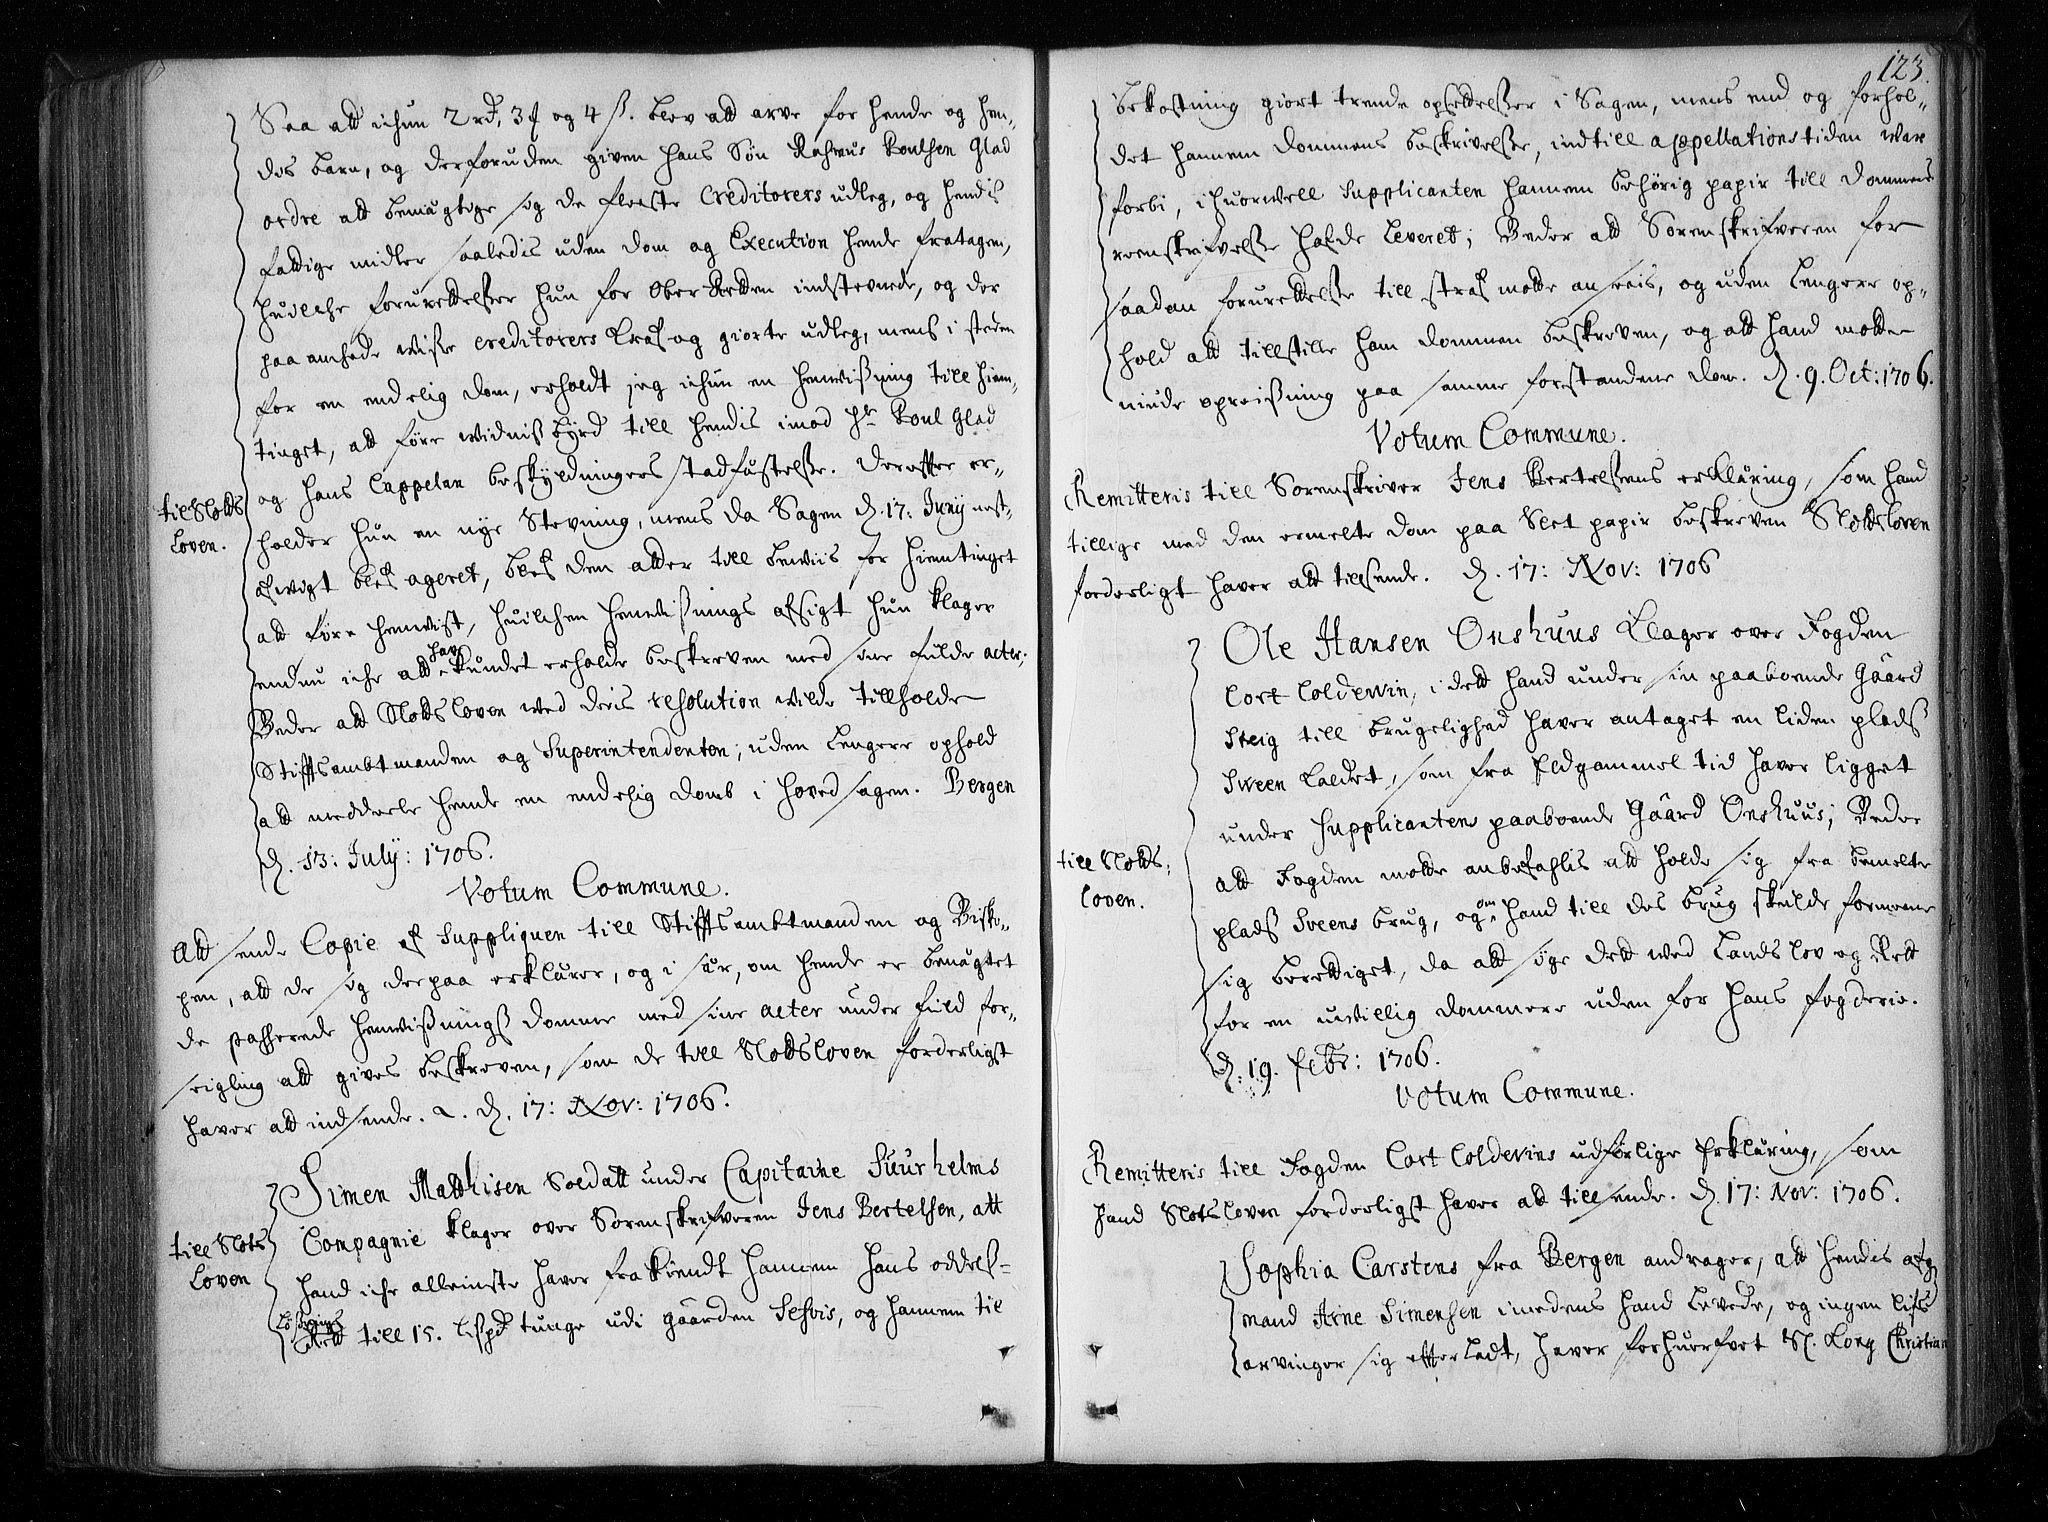 Saa att ichun 2 rd, 3 ꝑ og 4 ß. blev att arve for hende og hen-
des barn, og derforuden given hans Søn Rasmus Poulsen Glad
ordre att bemägtige sig de fleeste Creditorers udleg, og hendis
fattige midler saaledis uden dom og Execution hende fratagen,
huilche forurettelsser hun for Ober Retten indstevnede, og der
paa anchede wisse creditorers Kraf og giorte udleg, mens i steden
for en endelig dom, erholdt jeg ichun en henwißning till hiem-
tinget, att føre widnißbyrd till hendis imod Hr Poul Glad
og hans Cappelan beskyldningers stadfästelsse. Derefter er-
holder hun en nye Stevning, mens da Sagen d. 17: Junij nest-
afwigt blef ageret, blef den atter till bewiis for hiemtinget
att føre henwist, huilchen henwißnings afsigt hun klager
endnu iche att hav kundet erholde beskreven med sine fulde acter;
Beder att Slottsloven wed deris resolution wilde tillholde
Stiftsambtmanden og Superintendenten; uden lengere ophold
att meddeele hende en endelig domb i hoved sagen. Bergen
d. 13: July: 1706.
till Slotts
Loven.
Votum Commune.
Att sende Copie af Suppliquen till Stiftsambtmanden og Bisko-
pen, att de sig derpaa erklärer, og i sär, om hende er benägtet
de passerede henwißningß domme med sine acter under fuld for-
seigling att gives beskreven, som de till Slottsloven forderligst
haver att indsende. d. 17: Nov: 1706.
till Slots
Loven
Simen Matthisen Soldatt under Capitaine Suurhelms
Compagnie klager over Sorenskrifveren Jens Bertelsen, att
hand iche alleeniste haver frakiendt hannem hans oddels-
løsnings
Rett till 15. lispd tunge udi gaarden Sefvis, og hannem til
123.
bekostning giort trende opsettelsser i Sagen, mens end og forhol-
det hannem dommens beskrivelsse, indtill appellations tiden war
forbi, ihuorwell Supplicanten hannem behørig papir till dommens
reenskrifvelsse hafde leveret; Beder att Sorenskrifveren for
saadan forurettelsse till straf motte ansees, og uden lengere op-
hold att tillstille ham dommen beskreven, og att hand motte
niude opreißning paa samme forstandene dom. d. 9. Oct: 1706.
Votum Commune.
Remitteris till Sorenskriver Jens Bertelsens erkläring, som hand
tillige med den ermelte dom paa slet papir beskreven Slottsloven
forderligst haver att tillsende. d. 17: Nov: 1706
Ole Hansen Onshuus Klager over Fogden
Cort Coldewin, i dett hand under sin paaboende Gaard
Steig till brugelighed haver antaget en liden pladß
Sween kaldet, som fra Eldgammel tid haver ligget
under Supplicantens paaboende Gaard Onshuus; Beder
att Fogden motte anbefahlis att holde sig fra bemelte
pladß Sveens brug, og om hand till des brug skulde formeene
sig berettiget, da att søge dett wed Lands lov og Rett
for en uwillig dommere uden for hans fogderie.
d. 19. febr: 1706.
till Slotts-
loven.
Votum Commune.
Remitteris till Fogden Cort Coldevins udførlige Erkläring, som
hand Slotsloven forderligst haver att tillsende. d. 17: Nov: 1706.
Sophia Carstens fra Bergen andrager, att hendis
mand Arne Simensen imedens hand levede, og ingen lifs
arvinger sig efterladt, haver forhuerfvet Sl. Kong Christian